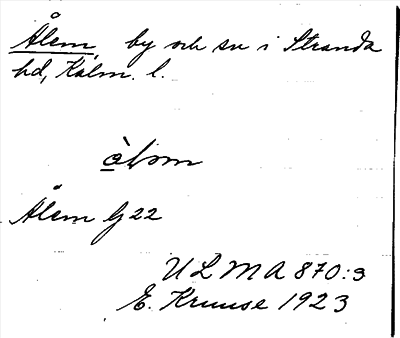 Ålem, by och sn i Stranda
hd, Kalm. l.
Ålem G 22
ULMA 870:3
E. Kruuse 1923